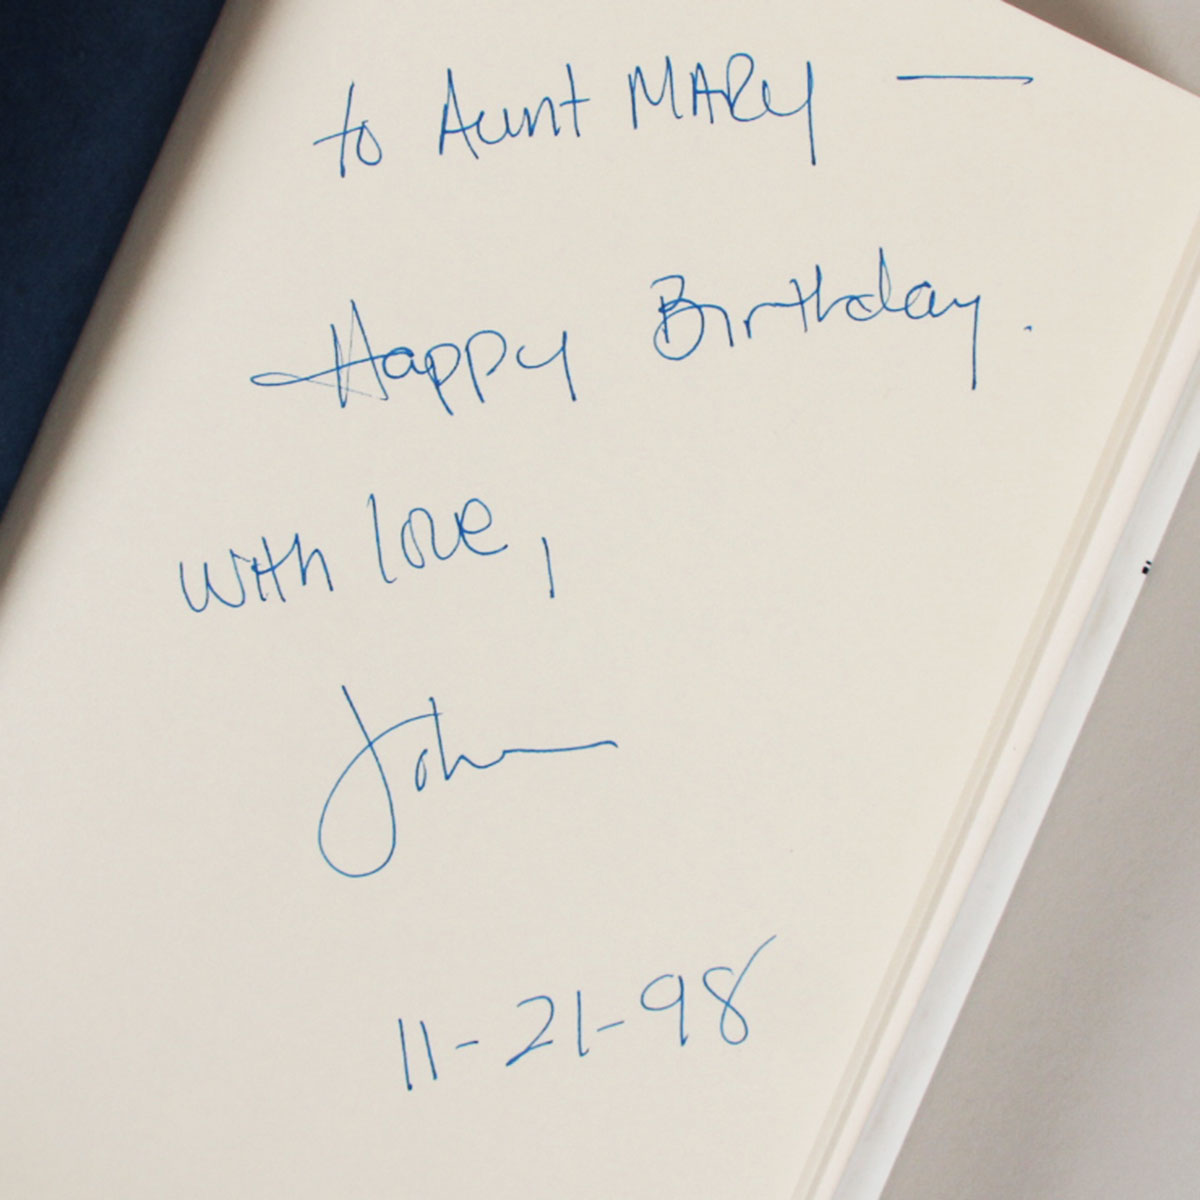 to Aunt MARY —
Happy Birthday.
with love,
John
11-21-98